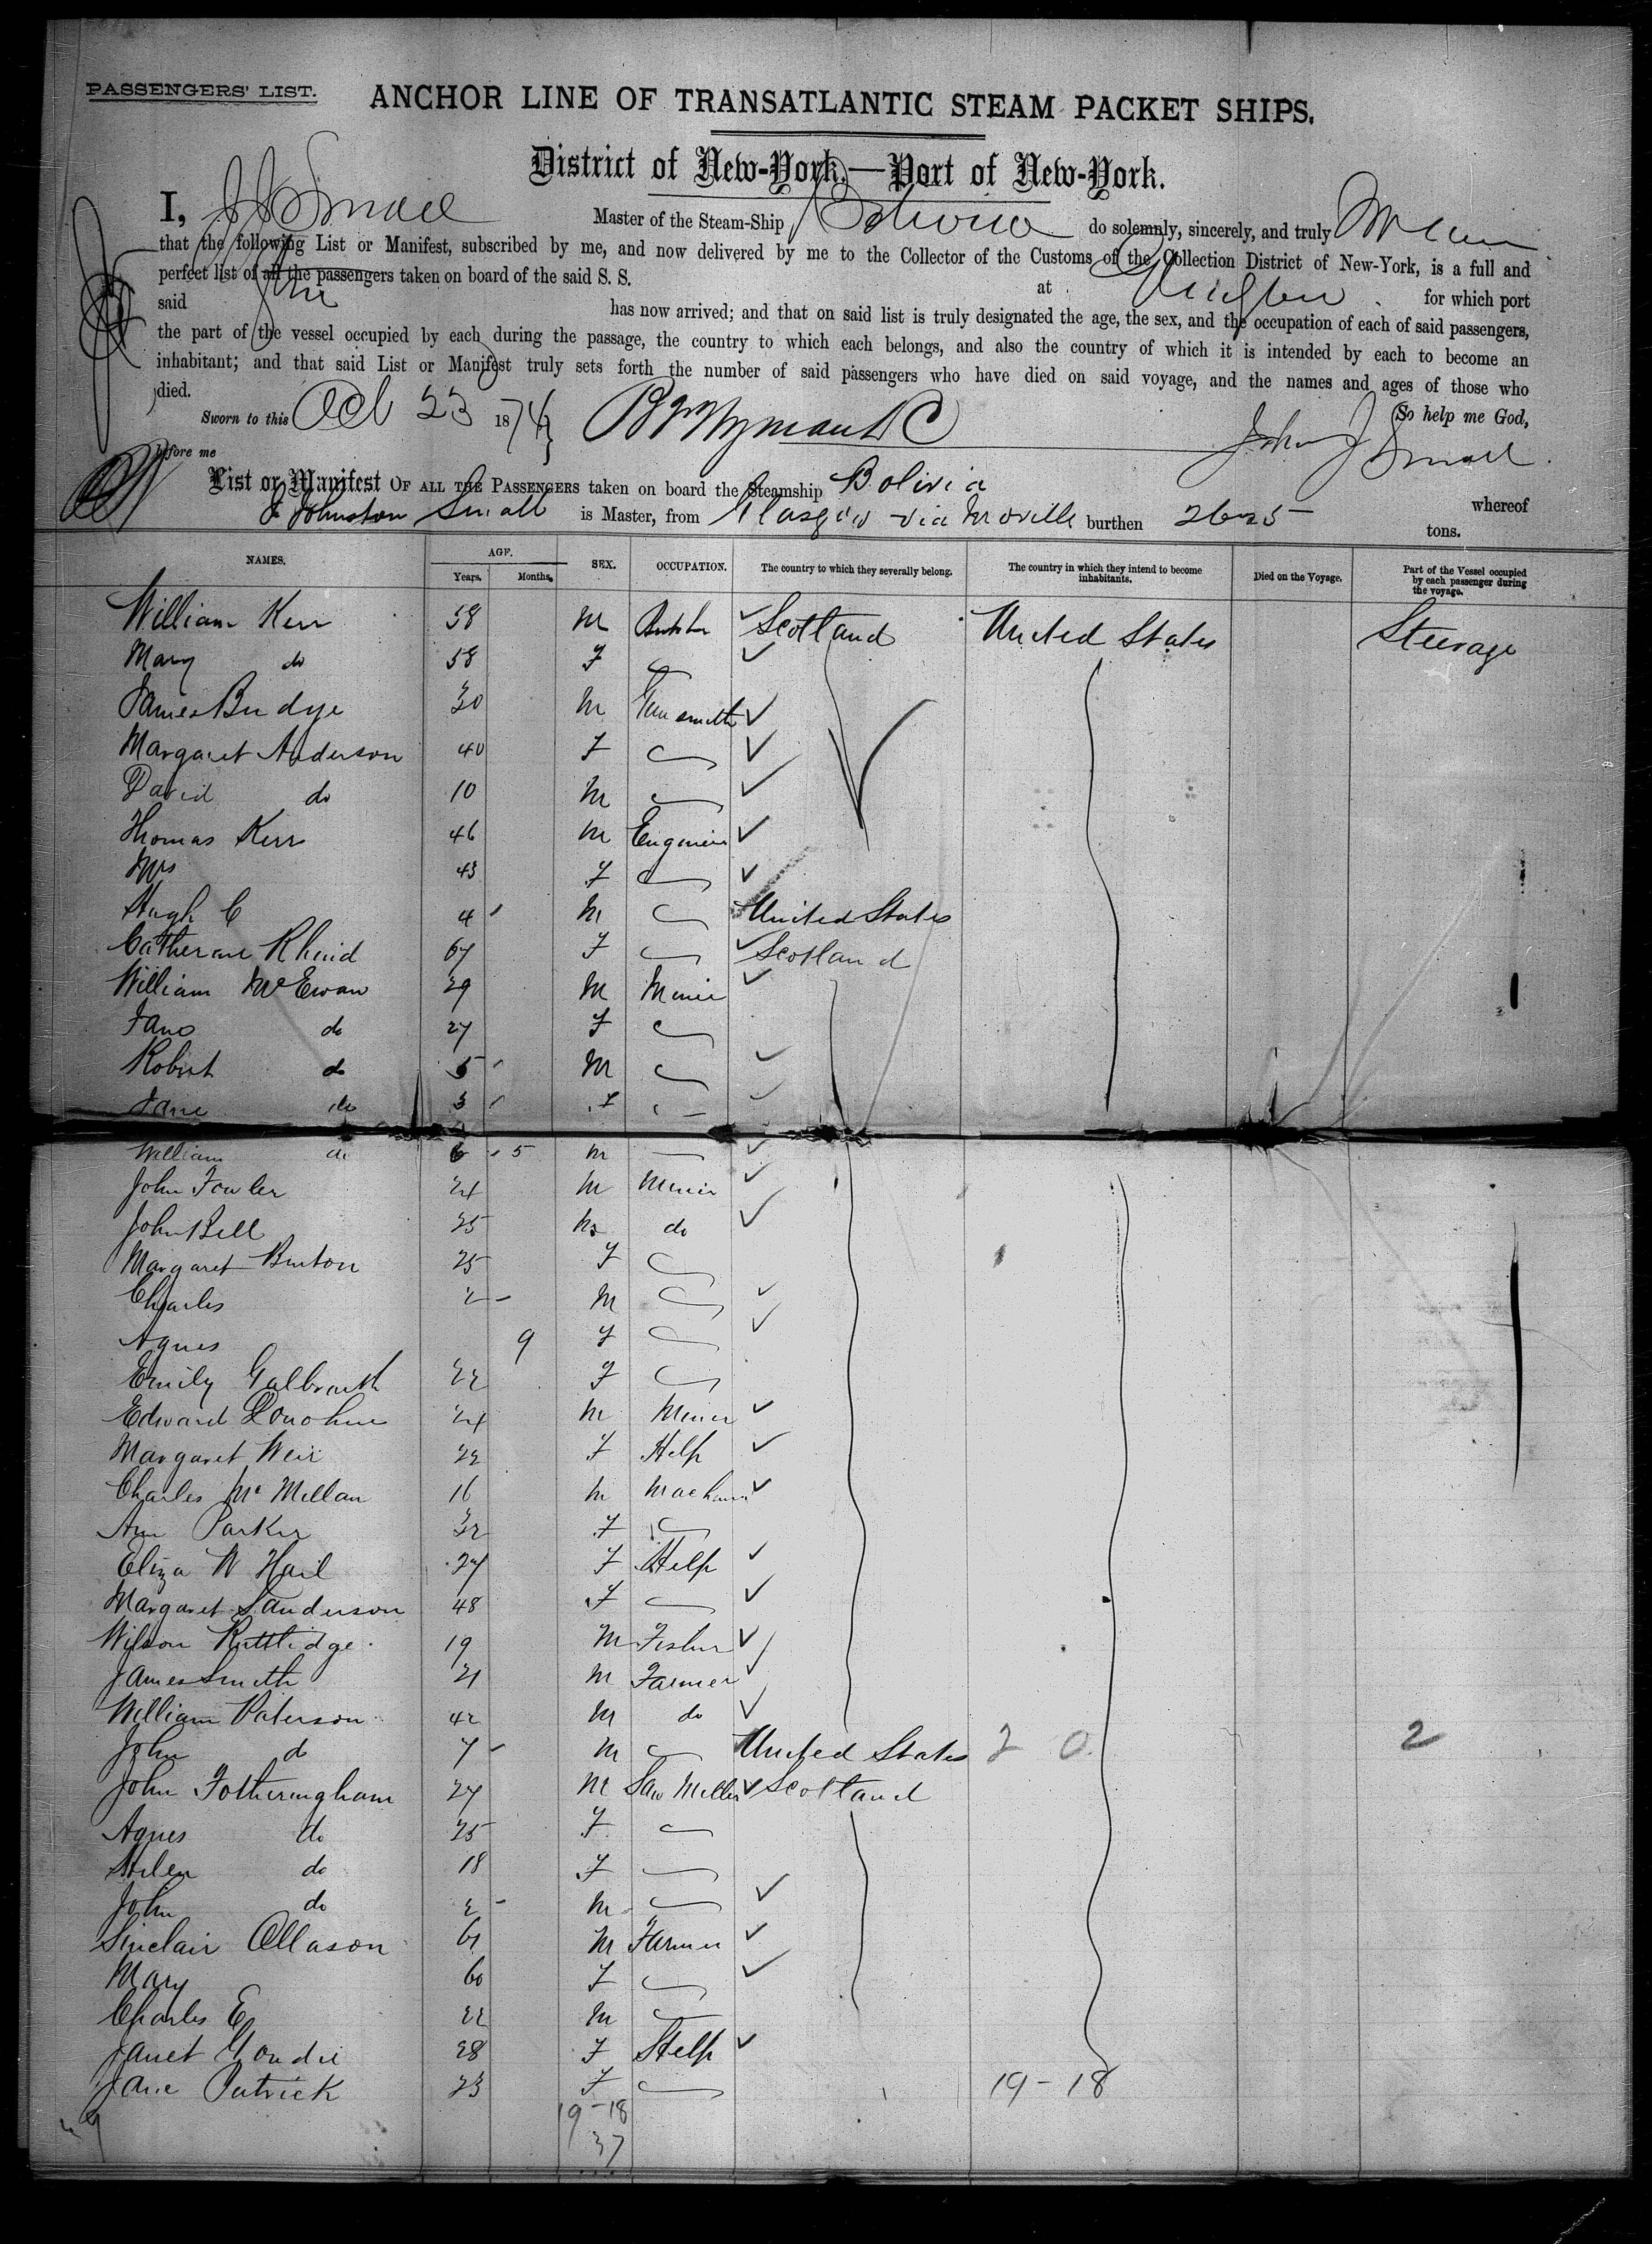 PASSENGERS' LIST.
ANCHOR LINE OF TRANSATLANTIC STEAM PACKET SHIPS.
District of New-York,—Port of New-York.
I, J J Small Master of the Steam-Ship Bolivia do solemnly, sincerely, and truly
that the following List or Manifest, subscribed by me, and now delivered by me to the Collector of the Customs of the Collection District of New-York, is a full and
perfect list of all the passengers taken on board of the said S. S. at for which port
said has now arrived; and that on said list is truly designated the age, the sex, and the occupation of each of said passengers,
the part of the vessel occupied by each during the passage, the country to which each belongs, and also the country of which it is intended by each to become an
inhabitant; and that said List or Manifest truly sets forth the number of said passengers who have died on said voyage, and the names and ages of those who
died. So help me God,
Sworn to this Oct 23 187
before me John J Small
List or Manifest OF ALL THE PASSENGERS taken on board the Steamship Bolivia whereof
J Johnston Small is Master, from Glasgow via Moville burthen 2625 tons.
NAMES. AGE. Years. Months. SEX. OCCUPATION. The country to which they severally belong. The country in which they intend to become inhabitants. Died on the Voyage. Part of the Vessel occupied by each passenger during the voyage.
William Kerr 58 M Scotland United States Steerage
Mary do 58 F
James Budge 30 M Tinsmith
Margaret Anderson 40 F
David do 10 M
Thomas Kerr 46 M Engineer
Mrs 43 F
Hugh C 4 M United States
Catherine Rhind 67 F Scotland
William McEwan 29 M Miner
Jane do 27 F
Robert do 5 M
Jane do 3 F
William do 5 M
John Fowler 24 M Miner
John Bell 25 M do
Margaret Burton 25 F
Charles 2 M
Agnes 9 F
Emily Galbraith 22 F
Edward Donohue 24 M Miner
Margaret Weir 22 F Help
Charles McMillan 16 M
Ann Parker 32 F
Eliza W Hail 27 F Help
Margaret Sanderson 48 F
Wilson Ruttlidge 19 M Fisher
James Smith 21 M Farmer
William Paterson 42 M do
John do 7 M United States 2 0 2
John Fotheringham 27 M Saw Miller Scotland
Agnes do 25 F
Helen do 18 F
John do 2 M
Sinclair Ollason 61 M Farmer
Mary 60 F
Charles E 22 M
Janet Goudie 28 F Help
Jane Patrick 23 F 19-18
19-18
37